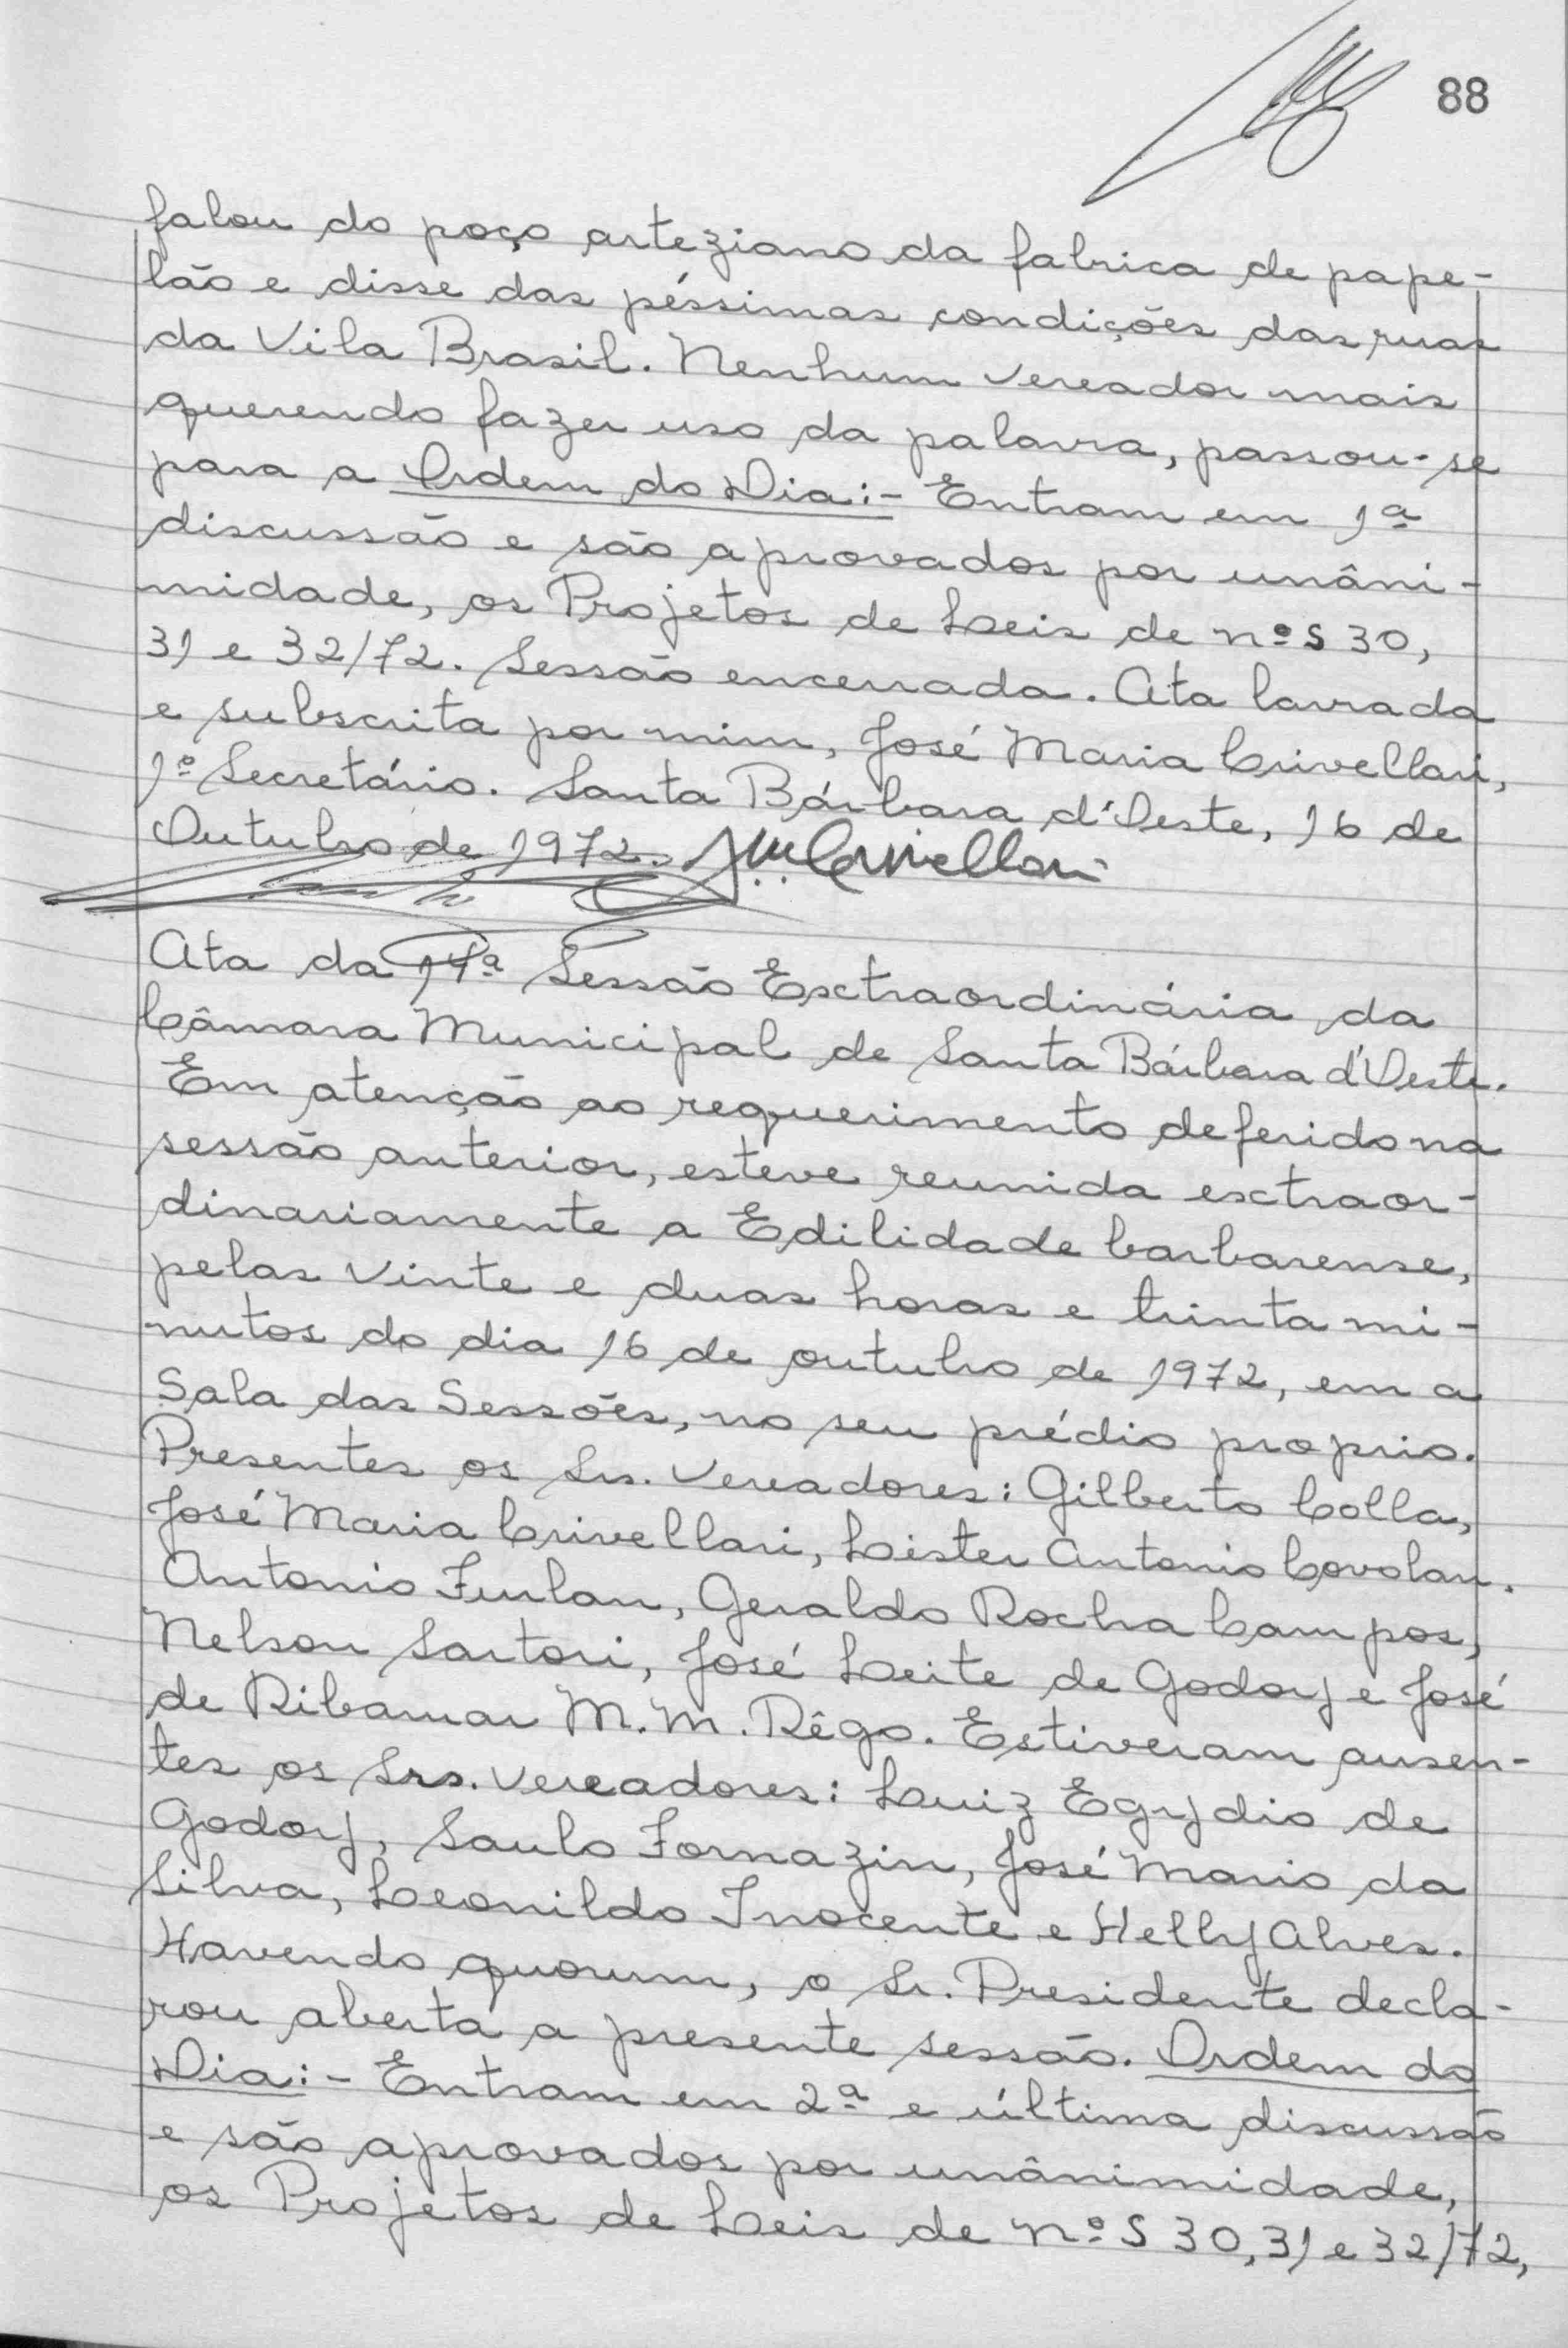 88
falou do poço arteziano da fabrica de pape-
lão e disse das péssimas condições das ruas
da Vila Brasil. Nenhum vereador mais
querendo fazer uso da palavra, passou-se
para a Ordem do Dia:- Entram em 1ª
discussão e são aprovados por unâni-
midade, os Projetos de Leis de nºs 30,
31 e 32/72. Sessão encerrada. Ata lavrada
e subscrita por mim, José Maria Crivellari,
1º Secretário. Santa Bárbara d'Oeste, 16 de
Outubro de 1972. JMCrivellari
Ata da Sessão Extraordinária da
Câmara Municipal de Santa Bárbara d'Oeste.
Em atenção ao requerimento deferido na
sessão anterior, esteve reunida extraor-
dinariamente a Edilidade barbarense,
pelas vinte e duas horas e trinta mi-
nutos do dia 16 de outubro de 1972, em a
Sala das Sessões, no seu prédio proprio.
Presentes os Srs. Vereadores: Gilberto Colla,
José Maria Crivellari, Lister Antonio Covolan.
Antonio Furlan, Geraldo Rocha Campos,
Nelson Sartori, José Leite de Godoy e José
de Ribamar M. M. Rêgo. Estiveram ausen-
tes os Srs. Vereadores: Luiz Egydio de
Godoy, Saulo Fornazin, José Mario da
Silva, Leonildo Inocente e Helly Alves.
Havendo quorum, o Sr. Presidente decla-
rou aberta a presente sessão. Ordem do
Dia:- Entram em 2ª e última discussão
e são aprovados por unânimidade,
os Projetos de Leis de nºs 30, 31 e 32/72,